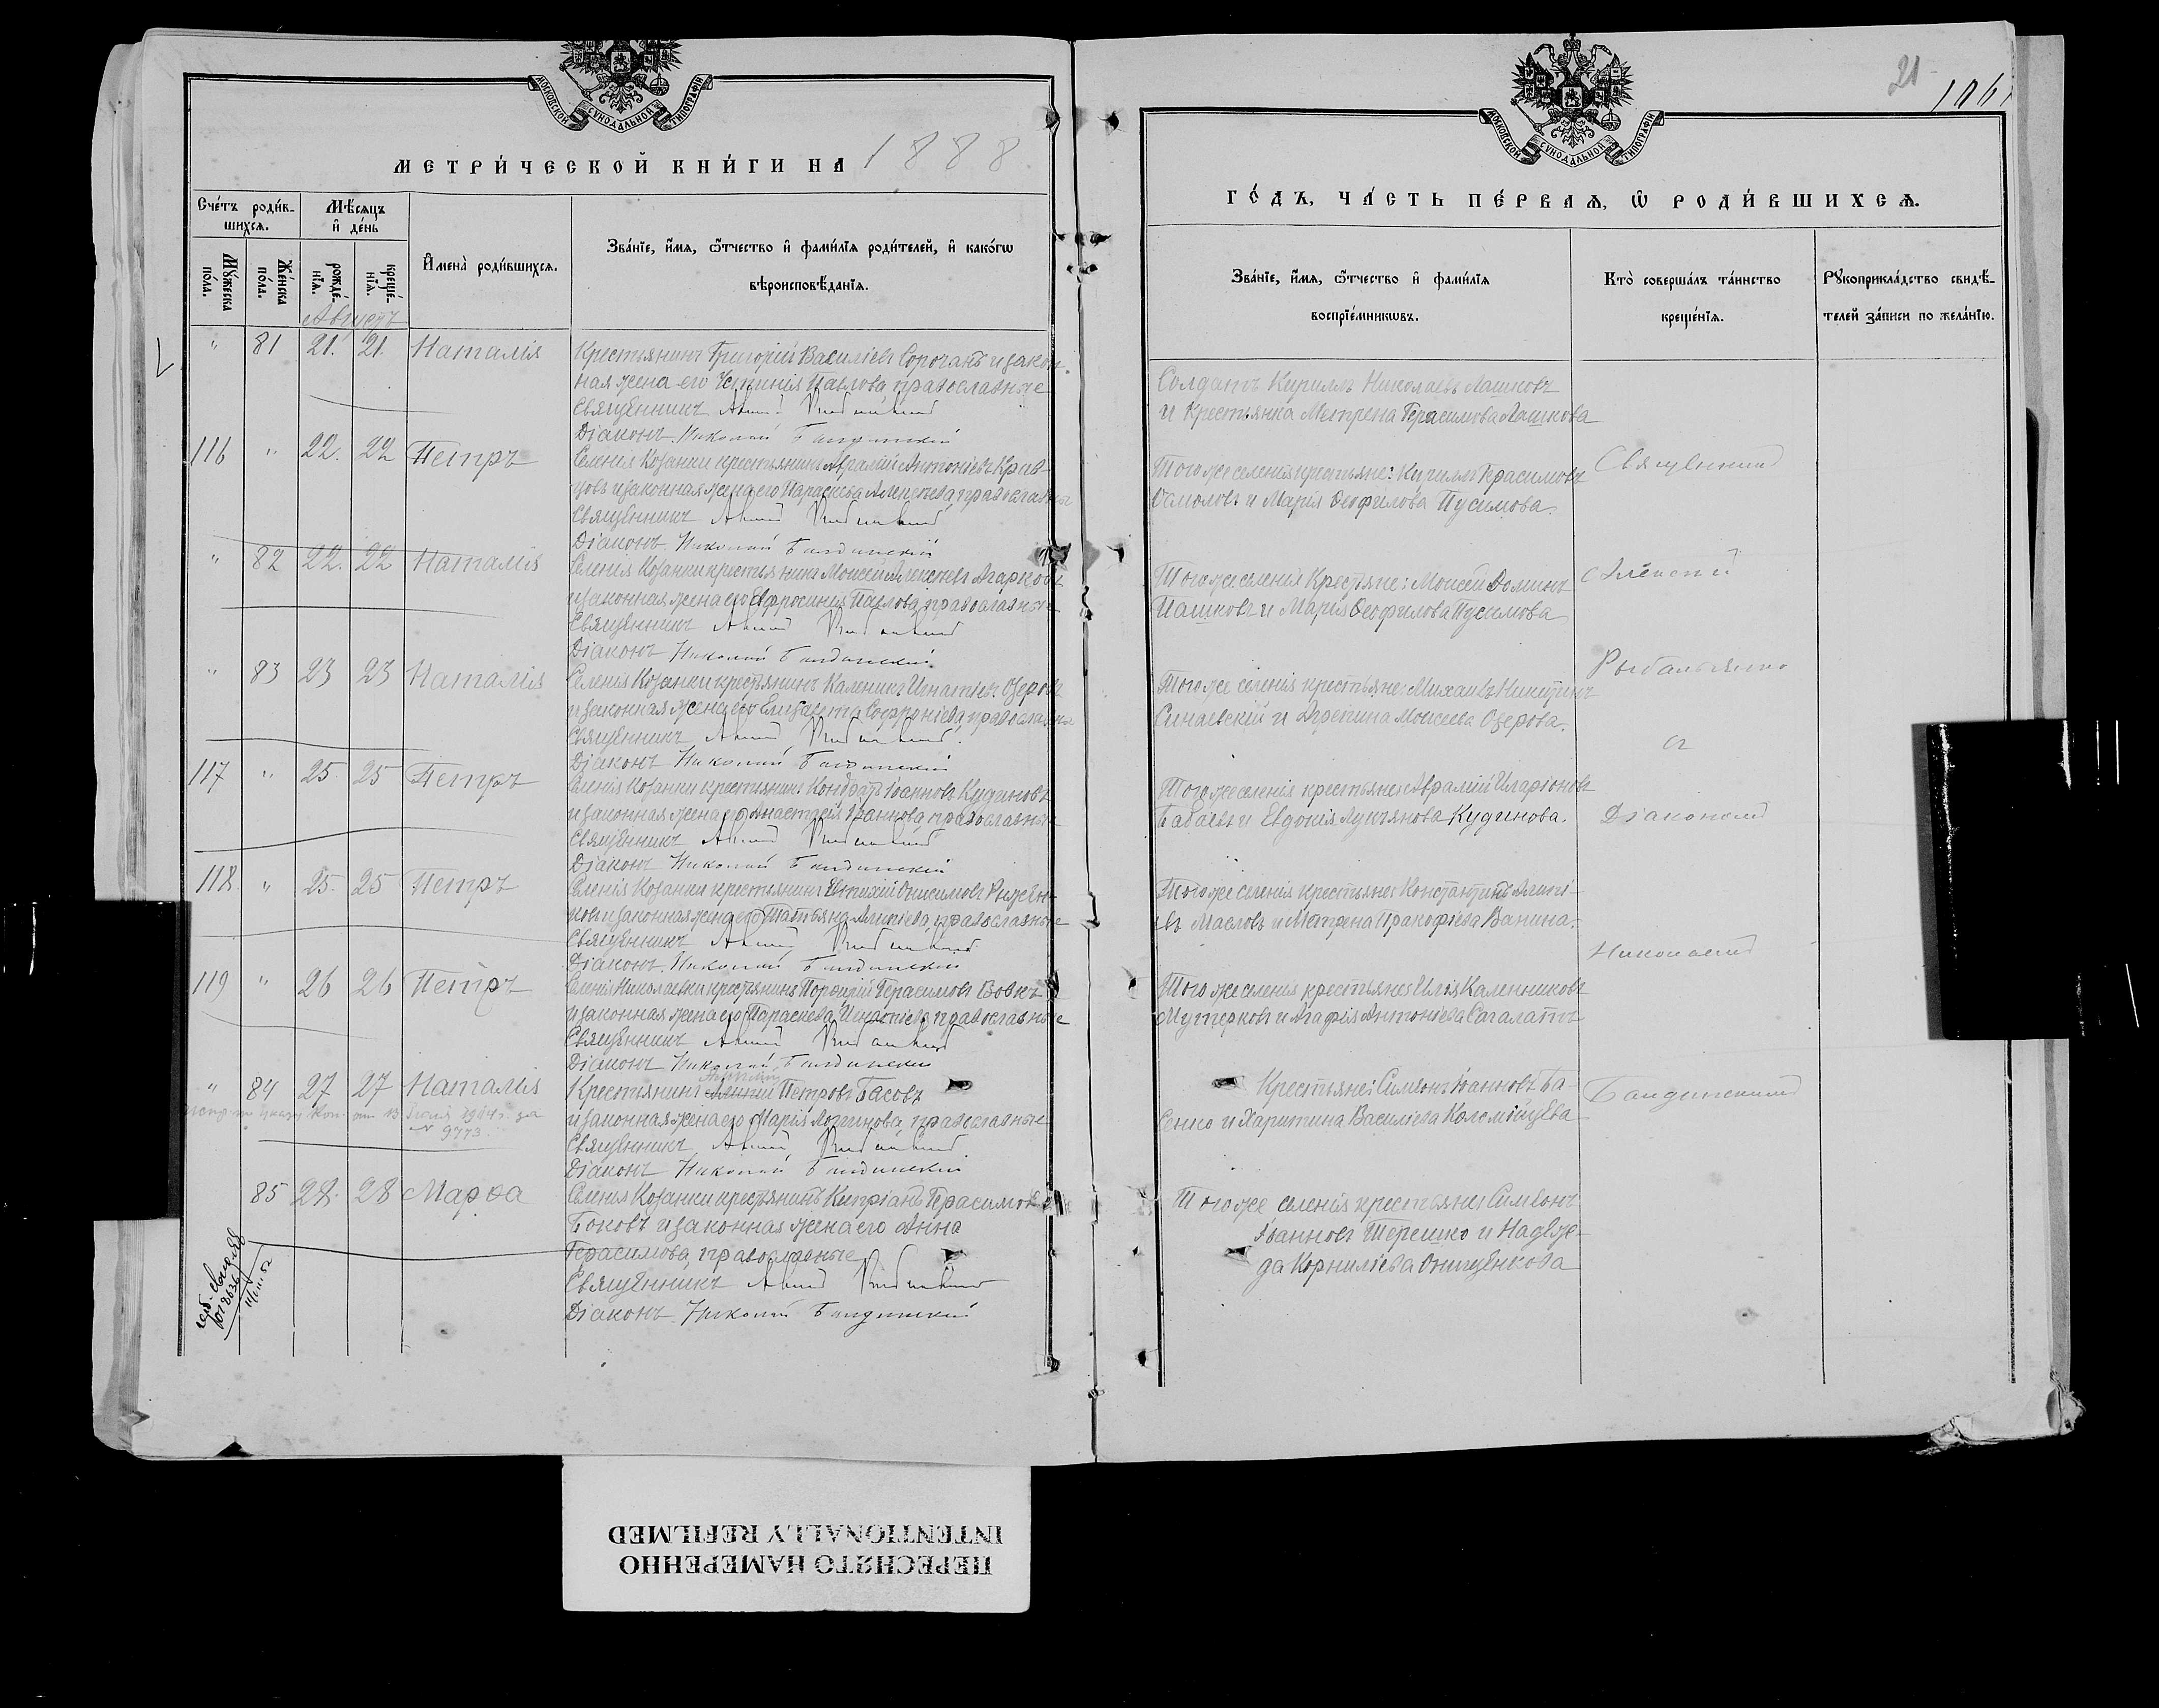 МОСКОВСКОЙ СѴНОДАЛЬНОЙ ТИПОГРАФІИ
МЕТРИ́ЧЕСКОЙ КНИ́ГИ НА 1888
Сче́тъ роди́в-
шихсѧ.
Мѣ́сѧцъ
и҆ де́нь
Мꙋ́жеска по́ла.
Же́нска по́ла.
рожде́-
нїѧ.
креще́-
нїѧ.
И҆мена̀ роди́вшихсѧ.
Зва́нїе, и҆́мѧ, ѻ҆́тчество и҆ фами́лїѧ роди́телей, и҆ како́гѡ
вѣроисповѣ́данїѧ.
Августъ
" 81 21. 21. Наталія
Крестьянинъ Григорій Василіевъ Сорочанъ и закон-
ная жена его Устинія Павлова, православные
Священникъ
Діаконъ Николай Бандинскій
116 " 22. 22 Петръ
Селенія Козанки крестьянинъ Авралій Антоніевъ Крив-
цовъ и законная жена его Параскева Алексѣева, православные
Священникъ
Діаконъ Николай Бандинскій
" 82 22. 22 Наталія
Селенія Козанки крестьянинъ Моисей Алексѣевъ Агарковъ
и законная жена его Евфросинія Павлова, православные
Священникъ
Діаконъ Николай Бандинскій
" 83 23 23 Наталія
Селенія Козанки крестьянинъ Каленикъ Игнатіевъ Озеровъ
и законная жена его Елизавета Софроніева, православные
Священникъ
Діаконъ Николай Бандинскій
117 " 25. 25 Петръ
Селенія Козанки крестьянинъ Кондратъ Іоанновъ Кудиновъ
и законная жена его Анастасія Іоаннова, православные
Священникъ
Діаконъ Николай Бандинскій
118. " 25. 25 Петръ
Селенія Козанки крестьянинъ Евтихій Онисимовъ
и законная жена его Татьяна, православные
Священникъ
Діаконъ Николай Бандинскій
119 " 26 26 Петръ
Селенія Николаевки крестьянинъ Порфирій Герасимовъ Вовкъ
и законная жена его Параскева Игнатіева, православные
Священникъ
Діаконъ Николай Бандинскій
" 84 27 27 Наталія
Крестьянинъ Петровъ Басовъ
и законная жена его Марія Логгинова, православные
13 Іюня 1904 г. за
№ 9773
Священникъ
Діаконъ Николай Бандинскій
85 28. 28 Марѳа
Селенія Козанки крестьянинъ Кипріанъ Герасимовъ
Боковъ и законная жена его Анна
Герасимова, православные
Священникъ
Діаконъ Николай Бандинскій
21
106
МОСКОВСКОЙ СѴНОДАЛЬНОЙ ТИПОГРАФІИ
ГО́ДЪ, ЧА́СТЬ ПЕ́РВАѦ, Ѡ҆ РОДИ́ВШИХСѦ.
Зва́нїе, и҆́мѧ, ѻ҆́тчество и҆ фами́лїѧ
воспрїе́мникѡвъ.
Кто̀ соверша́лъ та́инство
креще́нїѧ.
Рꙋкоприкла́дство свидѣ́-
телей за́писи по жела́нїю.
Солдатъ Кирилъ Николаевъ Лашковъ
и крестьянка Матрена Герасимова Лашкова
Того же селенія крестьяне: Кирилъ Герасимовъ
Осмоловъ и Марія Ѳеофилова Пусимова.
Того же селенія крестьяне: Моисей Доминъ
Пашковъ и Марія Ѳеофилова Пусимова
Того же селенія крестьяне: Михаилъ Никитинъ
Синаевскій и Агрепина Моисеева Озерова.
Того же селенія крестьяне: Авралій Иларіоновъ
Бабаевъ и Евдокія Лукьянова Кудинова.
Того же селенія крестьяне: Константинъ
Масловъ и Матрена Пракофіева Ванина.
Того же селенія крестьяне: Илія Каленниковъ
и Агафія Антоніева Сагалатъ
Крестьяне: Симеонъ Іоанновъ Ба-
сенко и Харитина Василіева Коломійцева
Того же селенія крестьяне: Симеонъ
Іоанновъ Терешко и Надеж-
да Корниліева Онищенкова
Священникъ
Алексій
съ
Діакономъ
Николаемъ
Бандинскимъ
ПЕРЕСНЯТО НАМЕРЕННО
INTENTIONALLY REFILMED